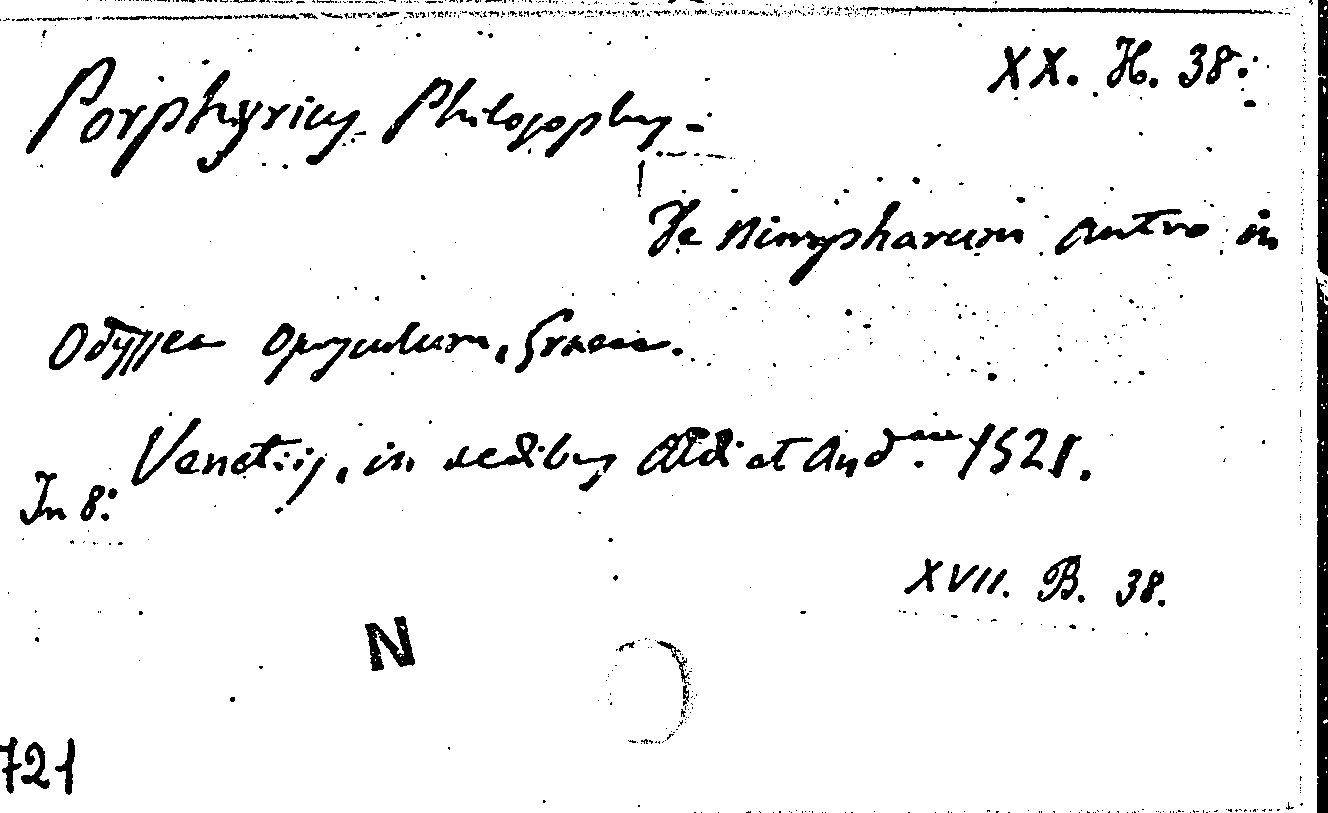 XX. H. 38.
Porphyrius Philosophus.
De Nimpharum Antro in
Odyssea Opusculum, Graece.
Venetiis, in aedibus Aldi et And. 1521.
In 8:
XVII. B. 38.
N
721